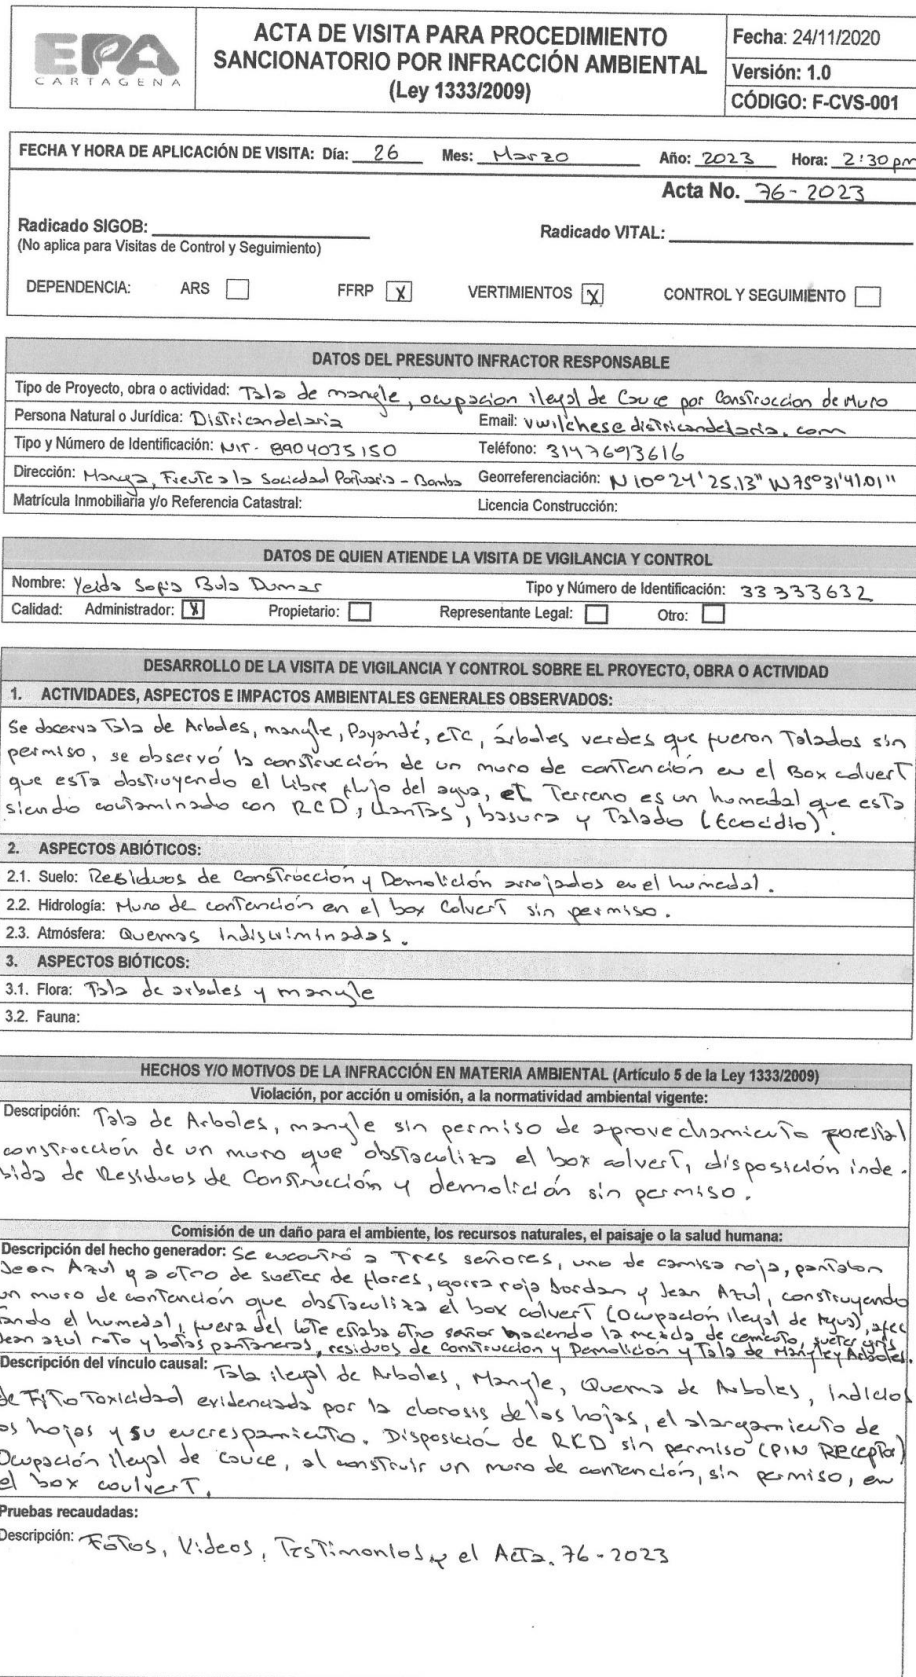 EPA
CARTAGENA
ACTA DE VISITA PARA PROCEDIMIENTO
SANCIONATORIO POR INFRACCIÓN AMBIENTAL
(Ley 1333/2009)
Fecha: 24/11/2020
Versión: 1.0
CÓDIGO: F-CVS-001
FECHA Y HORA DE APLICACIÓN DE VISITA: Día: 26 Mes: Marzo Año: 2023 Hora: 2:30 pm
Acta No. 76-2023
Radicado SIGOB:
(No aplica para Visitas de Control y Seguimiento)
Radicado VITAL:
DEPENDENCIA: ARS FFRP X VERTIMIENTOS X CONTROL Y SEGUIMIENTO
DATOS DEL PRESUNTO INFRACTOR RESPONSABLE
Tipo de Proyecto, obra o actividad: Tala de mangle, ocupacion ilegal de Cauce por Construccion de Muro
Persona Natural o Jurídica: Districandelaria Email: vwilches@districandelaria.com
Tipo y Número de Identificación: NIT- 8904035150 Teléfono: 3147693616
Dirección: Manga, Frente a la Sociedad Portuaria - Bomba Georreferenciación: N 10° 24' 25.13" W 75° 31' 41.01"
Matrícula Inmobiliaria y/o Referencia Catastral: Licencia Construcción:
DATOS DE QUIEN ATIENDE LA VISITA DE VIGILANCIA Y CONTROL
Nombre: Yeida Sofia Bula Dumar Tipo y Número de Identificación: 33333632
Calidad: Administrador: X Propietario: Representante Legal: Otro:
DESARROLLO DE LA VISITA DE VIGILANCIA Y CONTROL SOBRE EL PROYECTO, OBRA O ACTIVIDAD
1. ACTIVIDADES, ASPECTOS E IMPACTOS AMBIENTALES GENERALES OBSERVADOS:
Se observa Tala de Arboles, mangle, Payandé, etc, árboles verdes que fueron Talados sin
permiso, se observó la construcción de un muro de contención en el Box calvert
que esta obstruyendo el libre flujo del agua, el Terreno es un humedal que esta
siendo contaminado con RCD, llantas, basura y Talado (Ecocidio).
2. ASPECTOS ABIÓTICOS:
2.1. Suelo: Residuos de Construcción y Demolición arrojados en el humedal.
2.2. Hidrología: Muro de contención en el box Colvert sin permiso.
2.3. Atmósfera: Quemas indiscriminadas.
3. ASPECTOS BIÓTICOS:
3.1. Flora: Tala de arboles y mangle
3.2. Fauna:
HECHOS Y/O MOTIVOS DE LA INFRACCIÓN EN MATERIA AMBIENTAL (Artículo 5 de la Ley 1333/2009)
Violación, por acción u omisión, a la normatividad ambiental vigente:
Descripción: Tala de Arboles, mangle sin permiso de aprovechamiento forestal
construcción de un muro que obstaculiza el box calvert, disposición inde-
bida de Residuos de Construcción y demolición sin permiso.
Comisión de un daño para el ambiente, los recursos naturales, el paisaje o la salud humana:
Descripción del hecho generador: Se encontró a Tres señores, uno de camisa roja, pantalon
Jean Azul y a otro de sueter de flores, gorra roja Jordan y Jean Azul, construyendo
un muro de contención que obstaculiza el box colvert (Ocupación ilegal de Agua), afec
tando el humedal, fuera del lote estaba otro señor haciendo la mezcla de cemento, sueter gris
Jean azul roto y botas pantaneras, residuos de Construccion y Demolicion y Tala de Mangle y Arboles.
Descripción del vínculo causal: Tala ilegal de Arboles, Mangle, Quema de Arboles, Indicios
de FitoToxicidad evidenciada por la clorosis de las hojas, el alargamiento de
as hojas y su encrespamiento. Disposición de RCD sin permiso (PIN Receptor)
Ocupación ilegal de cauce, al construir un muro de contención, sin permiso, en
el box coulvert.
Pruebas recaudadas:
Descripción: Fotos, Videos, Testimonios y el Acta. 76-2023